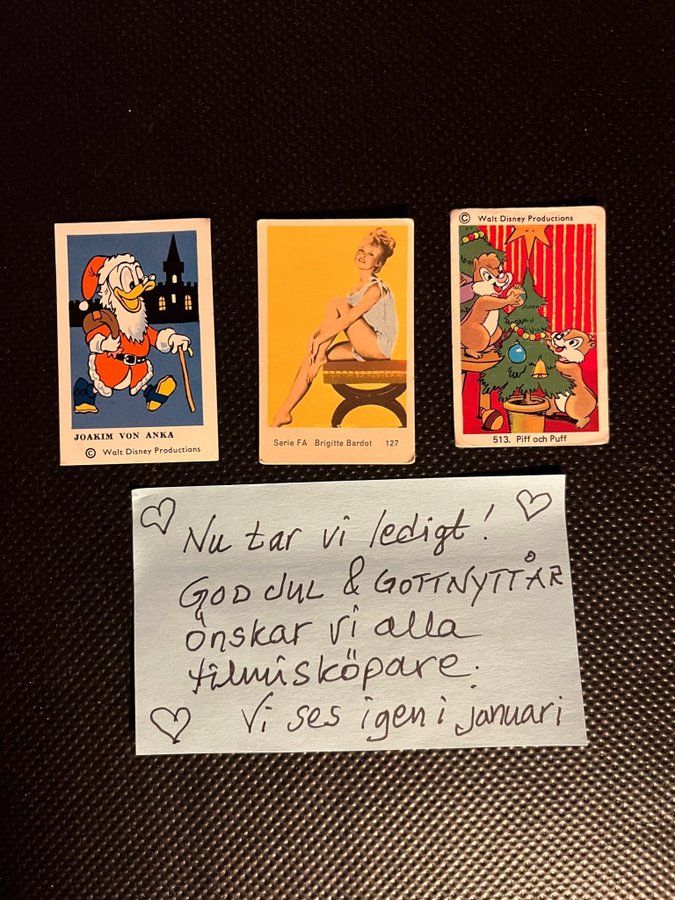 JOAKIM VON ANKA
© Walt Disney Productions
Serie FA Brigitte Bardot 127
© Walt Disney Productions
513. Piff och Puff
Nu tar vi ledigt!
GOD JUL & GOTTNYTTÅR
önskar vi alla
filmisköpare.
Vi ses igen i januari